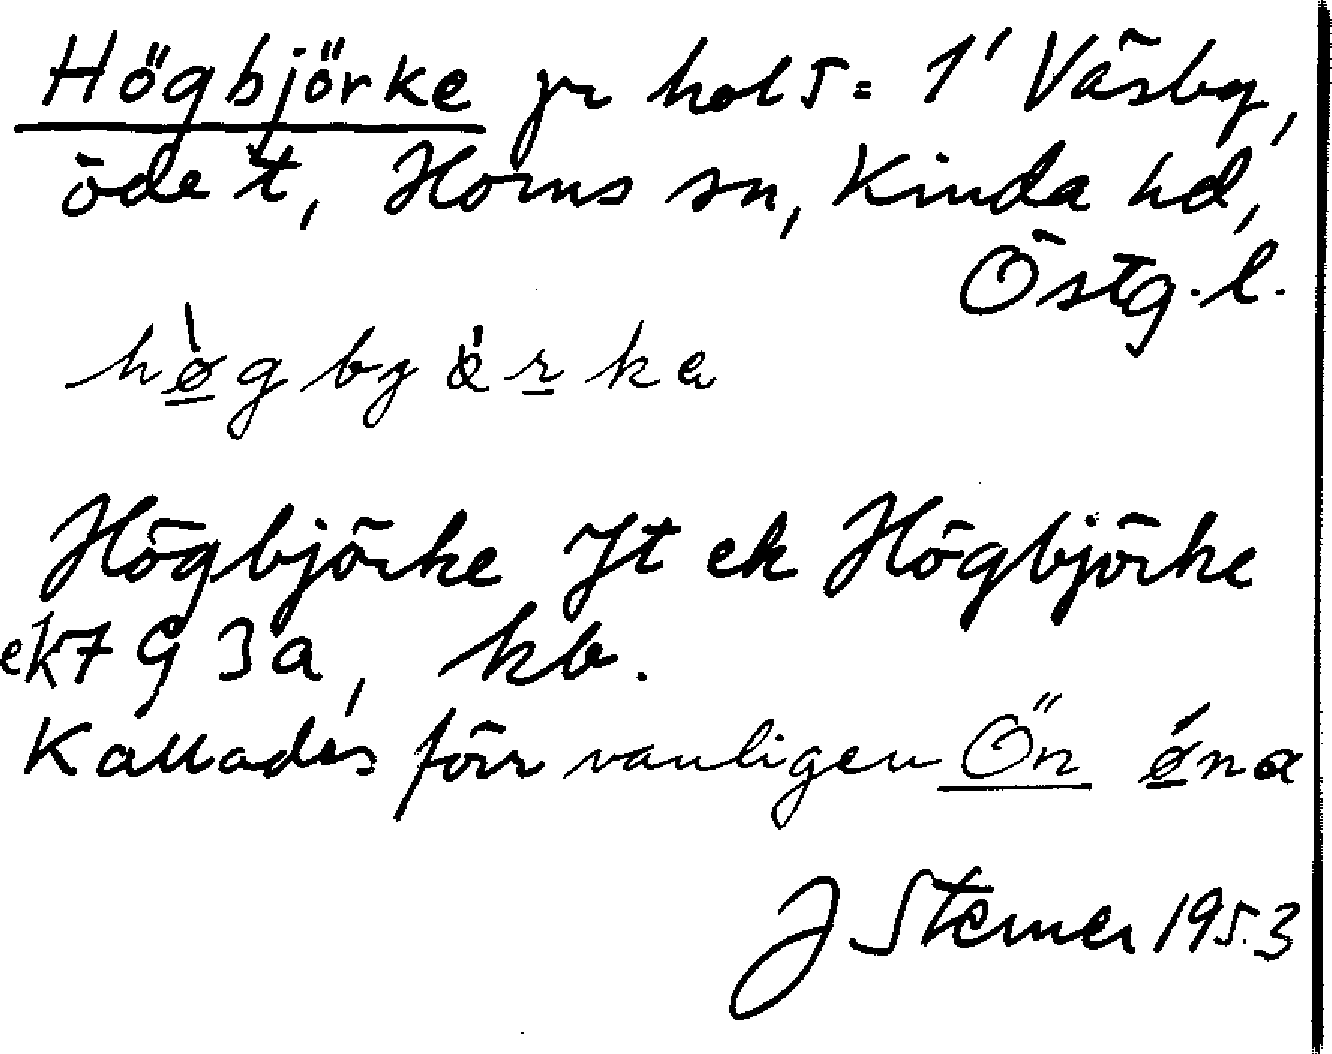 Högbjörke på kol 5 = 1' Väsby,
öde t, Horns sn, Kinda hd,
Östg. l.
högbyörka
Högbjörke Jt ek Högbjörke
ek7 G 3a, kb.
Kallades förr vanligen Ön öna
J Sterner 1953